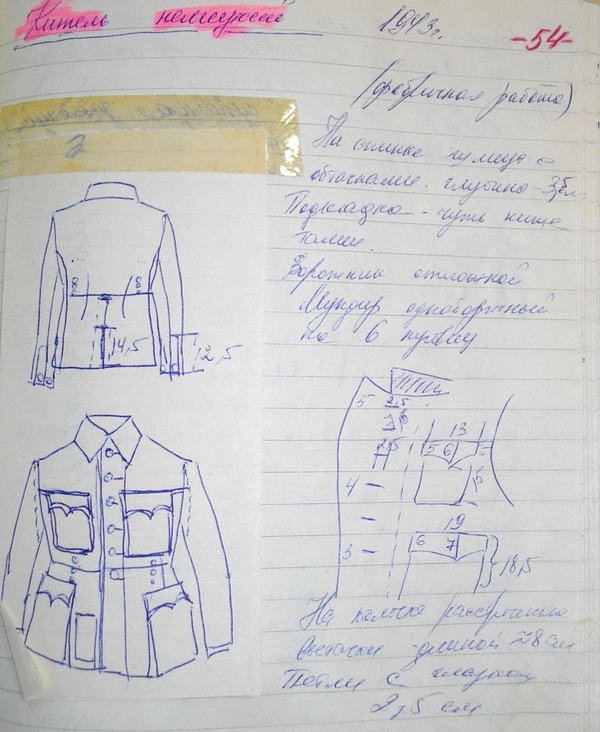 Китель 1943г. -54-
(фабричная работа)
На спинке
обтачками. глубина - 3,5
Подкладка - чуть ниже
талии.
Воротник отложной
Мундир однобортный
на 6 пуговиц
14,5
12,5
5
2,5
13
2,5
5 6
4
19
6 7
3
18,5
На полочке
вытачки длиной ≈8 см
Петли с глазком
2,5 см